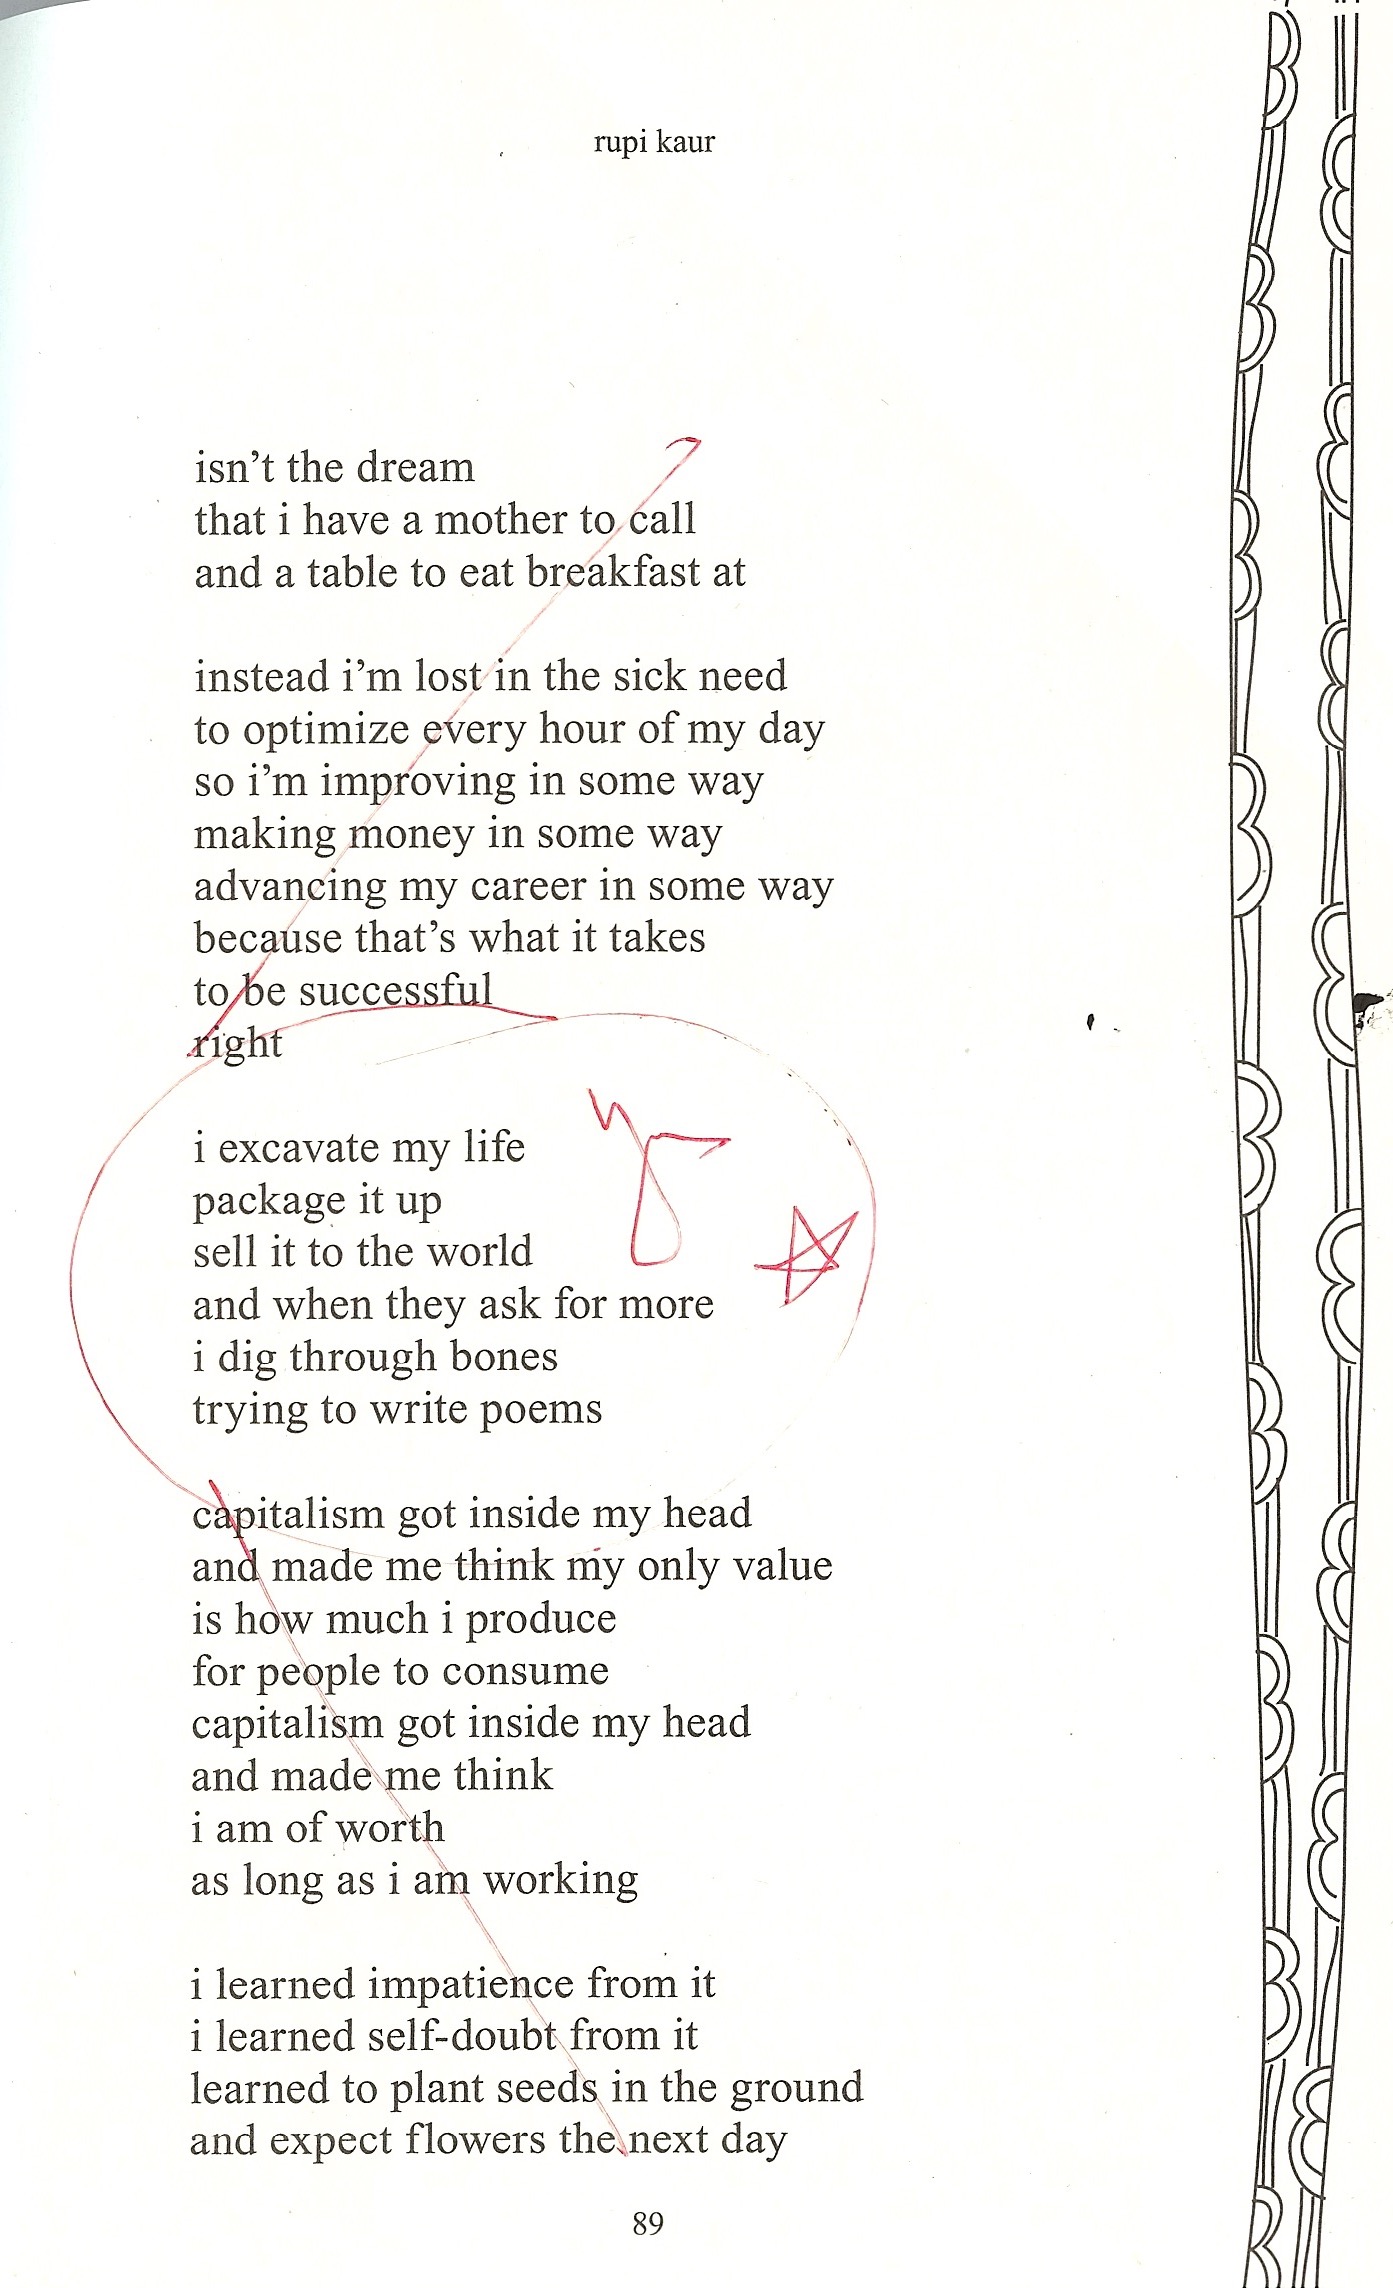 rupi kaur
isn’t the dream
that i have a mother to call
and a table to eat breakfast at
instead i’m lost in the sick need
to optimize every hour of my day
so i’m improving in some way
making money in some way
advancing my career in some way
because that’s what it takes
to be successful
right
i excavate my life
package it up
sell it to the world
and when they ask for more
i dig through bones
trying to write poems
capitalism got inside my head
and made me think my only value
is how much i produce
for people to consume
capitalism got inside my head
and made me think
i am of worth
as long as i am working
i learned impatience from it
i learned self-doubt from it
learned to plant seeds in the ground
and expect flowers the next day
89